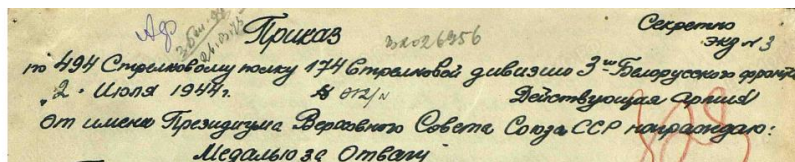 Приказ
Секретно
экз № 3
по 494 Стрелковому полку 174 Стрелковой дивизии 3го Белорусского фронта
"2" Июля 1944г. № 012/н Действующая Армия
От имени Президиума Верховного Совета Союза ССР награждаю:
Медалью за Отвагу